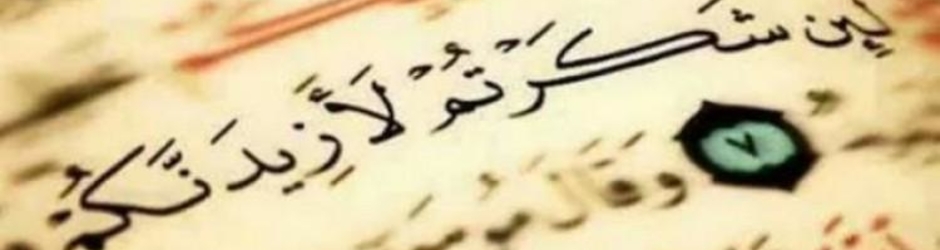 لَئِن شَكَرْتُمْ لَأَزِيدَنَّكُمْ
٧ وَقَالَ مُوسَىٰ